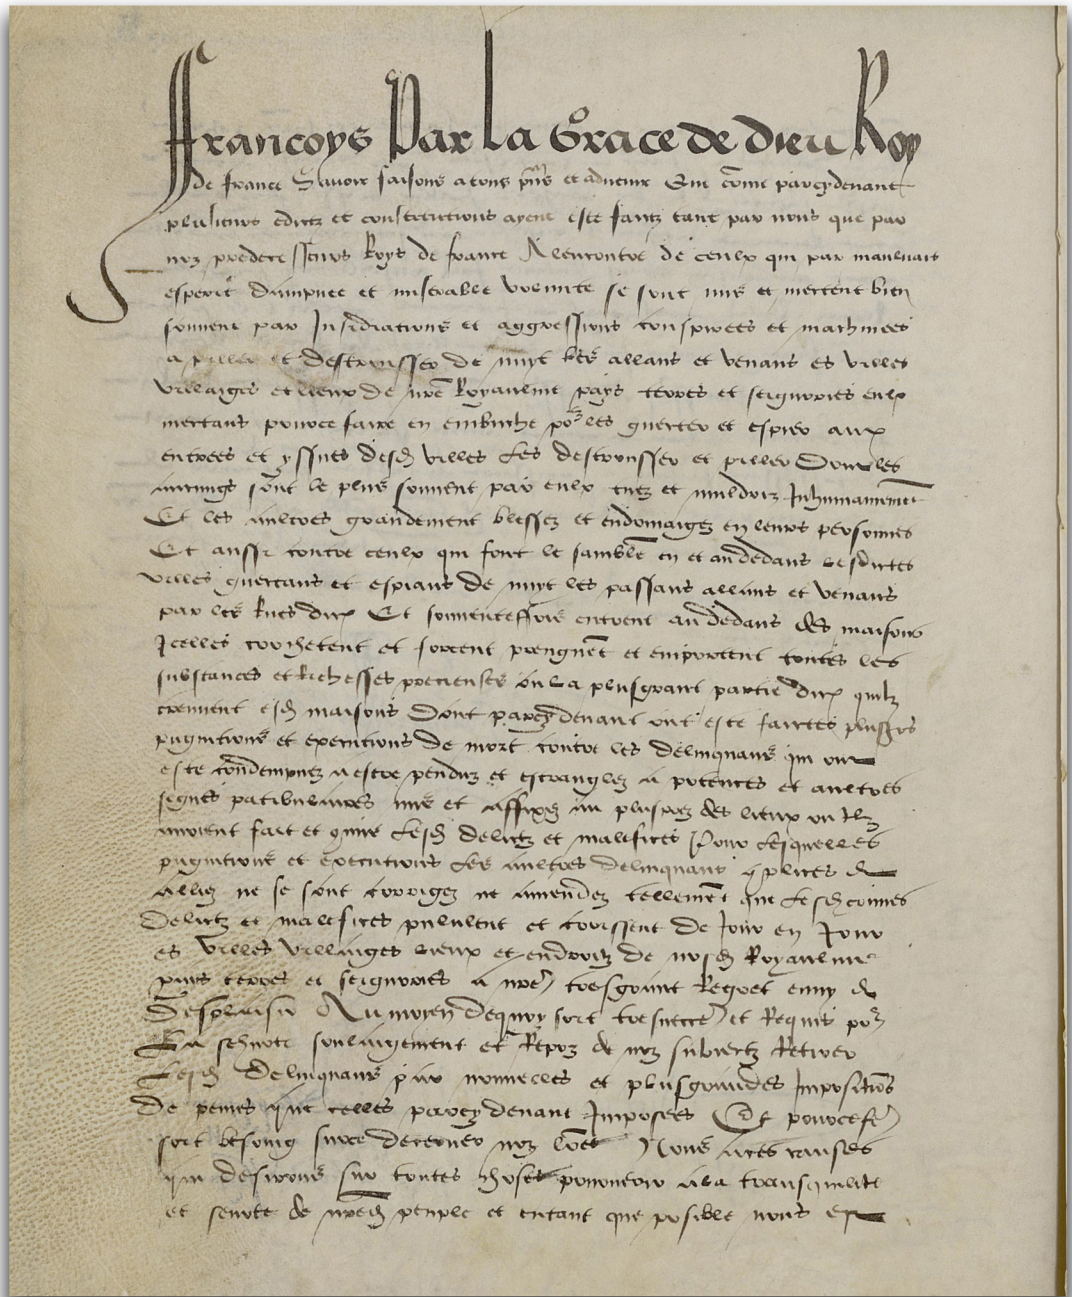 Francoys Par la Grace de dieu Roy
de france Savoir faisons a tous p̃ns et advenir Que cõme parcydevant
plusieurs edictz et constitutions ayent este faictz tant par nous que par
noz predecesseurs Roys de france A lencontre de ceulx qui par mauluais
esperit dampnee et miserable volunte se sont mis et mectent bien
souvent par Insidiations et aggressions conspirees et machinees
a piller et destrousser de nuyt les allans et venans es villes
villaiges et lieux de nr̃e Royaulme pays terres et seigneuries eulx
mectans pour ce faire en embusche por les guecter et espier aux
entrees et yssues desd villes Les destrousser et piller Dont les
aucungs sont le plus souvent par eulx tuez et meuldriz Inhumainement
Et les aultres grandement blessez et endommaigez en leurs personnes
Et aussi contre ceulx qui font le semblẽ en et audedans lesdictes
villes guectans et espians de nuyt les passans allans et venans
par les Rues dicx Et souventesfois entrent au dedans des maisons
Icelles crochetent et forcent prengnẽt et emportent toutes les
substances et Richesses precieuses ou la plusgrant partie dicx quilz
treuvent esd maisons Dont parcydevant ont este faictes plusrs
pugnitions et executions de mort contre les delinquans qui ont
este condempnez a estre penduz et estranglez a potences et aultres
signes patibulaires mis et affixez au plus prez des lieux ou Ilz
avoient fait et cõmis Lesd delictz et malefices Pour Lesquelles
pugnitions et executions Les aultres delinquans cõplices et
alliez ne se sont corrigez ne amendez tellement que Lesd crimes
delictz et malefices pululent et croissent de Jour en Jour
es villes villaiges lieux et endroitz de nosd Royaulme
pais terres et seigneuries a nr̃e tresgrant Regret ennuy et
desplaisir Au moyen dequoy soit tresnecẽ et Requis por
La seurete soulaigement et Repoz de noz subiectz Retirer
Lesd delinquans par nouvelles et plusgrandes Impositiõs
de peines que celles parcydevant Imposees Et pour ce fẽ
soit besoing sur ce decerner noz lr̃es Nous a ces causes
qui desirons sur toutes choses pourveoir a la transquilite
et seurete de nr̃ed peuple et entant que posible nous est